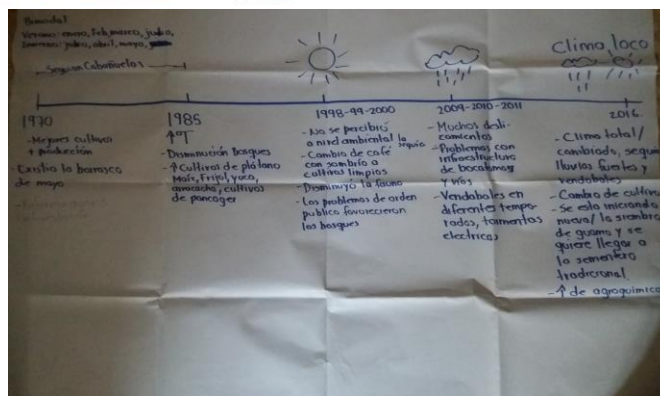 Bimodal
Verano: enero, Feb, marzo, junio,
Invierno: julio, abril, mayo,
Seguian Cabañuelas
Clima loco
1970
- Mejores cultivos
+ producción
Existia la borrasca
de mayo
1985
↑T
- Disminución bosques
- ↑Cultivos de plátano
Maíz, Frijol, yuca,
arracacha, cultivos
de pancoger
1998-99-2000
- No se percibió
a nivel ambiental la sequía
- Cambio de café
con sombrío a
cultivos limpios
- Disminuyó la fauna
- Los problemas de orden
publico favorecieron
los bosques
2009-2010-2011
- Muchos desli-
zamientos
- Problemas con
infraestructura
de bocatomas
y vías
- Vendabales en
diferentes tempo-
radas, tormentas
electricas
2016
- Clima total/
cambiado, sequia
lluvias fuertes y
vendabales
- Cambio de cultivo
- Se esta iniciando
nueva/ la siembra
de guamo y se
quiere llegar a
la sementera
tradicional
- ↑ de agroquimico